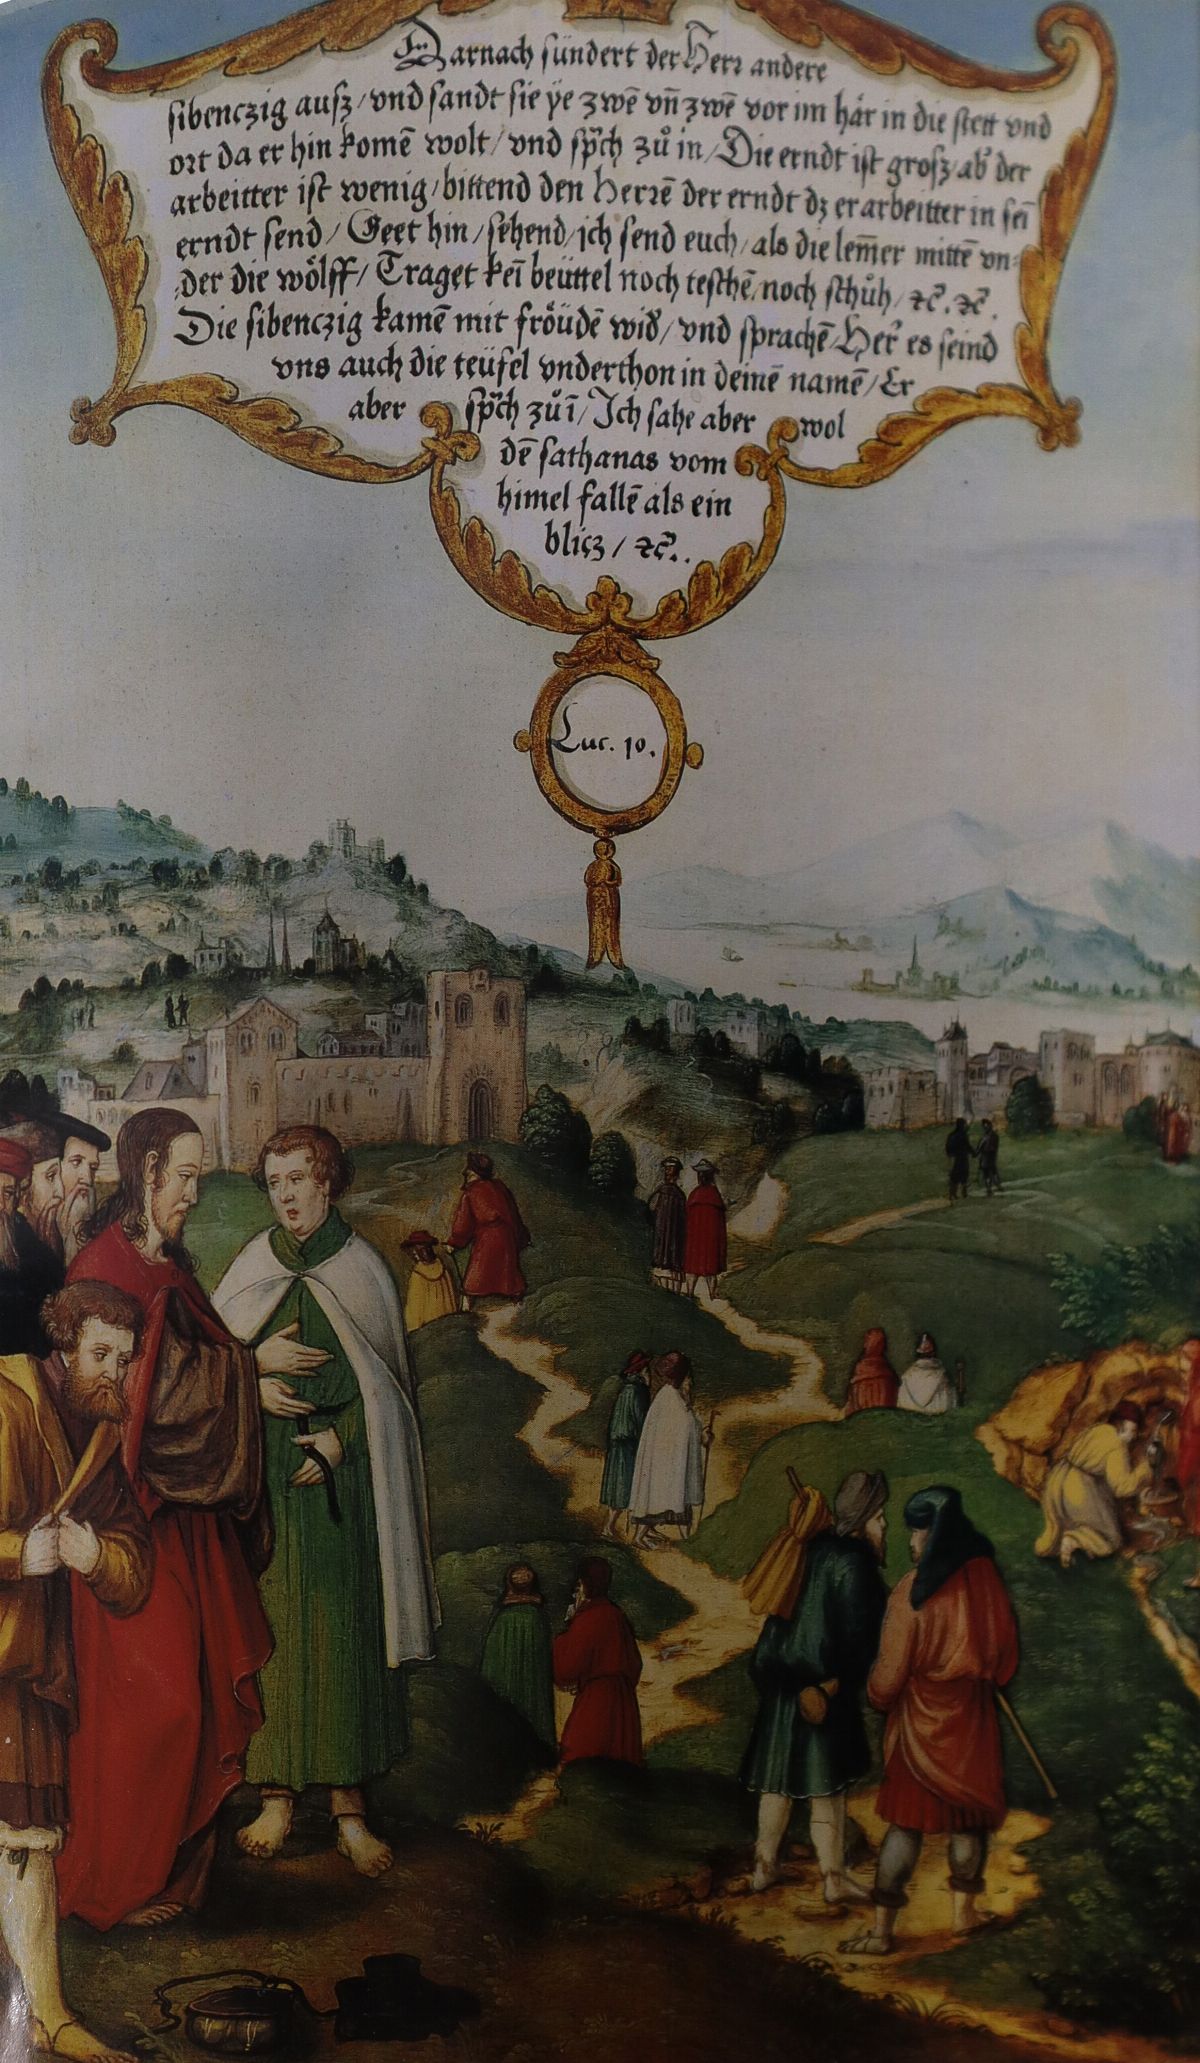 Darnach sündert der Herr andere
sibenczig ausz/ vnd sandt sie ye zwē vñ zwē vor im här in die stett vnd
ort da er hin komē wolt/ vnd sp̄ch zů in/ Die erndt ist grosz/ ab' der
arbeitter ist wenig/ bittend den Herrē der erndt dz er arbeitter in sei͞
erndt send/ Geet hin/ sehend/ ich send euch/ als die lem̄er mittē vn-
der die wölff/ Traget kei͞ beüttel noch teschē/ noch schůh/ ꝛc̄. ꝛc̄.
Die sibenczig kamē mit fröüdē wid'/ vnd sprachē/ Her' es seind
vns auch die teüfel vnderthon in deinē namē/ Er
aber sp̄ch zů i͞/ Ich sahe aber wol
dē sathanas vom
himel fallē als ein
blicz/ ꝛc̄..
Luc. 10.